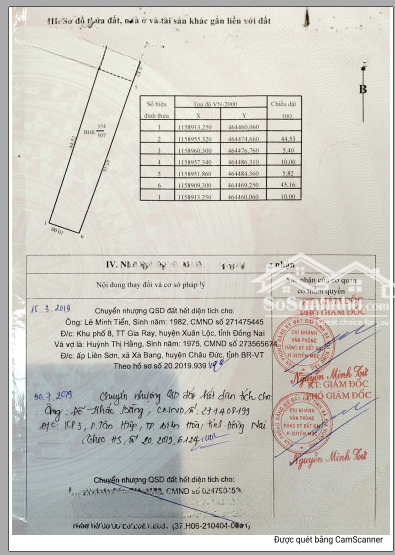 III. Sơ đồ thửa đất, nhà ở và tài sản khác gắn liền với đất
B
354
BHK 507
44.53
37.34
10.00
1
6
5
Số hiệu đỉnh thửa
Tọa độ VN-2000
Chiều dài (m)
X Y
1 1158913,250 464460,060
44,53
2 1158955,320 464474,660
5,40
3 1158960,300 464476,760
10,00
4 1158957,340 464486,310
5,82
5 1158951,860 464484,360
45,16
6 1158909,300 464469,250
10,00
1 1158913,250 464460,060
IV.
Nội dung thay đổi và cơ sở pháp lý
nhận của cơ quan có thẩm quyền
15.3.2019
Chuyển nhượng QSD đất hết diện tích cho:
Ông: Lê Minh Tiến, Sinh năm: 1982, CMND số: 271475445
Đ/c: Khu phố 8, TT Gia Ray, huyện Xuân Lộc, tỉnh Đồng Nai
Và vợ là: Huỳnh Thị Hằng, Sinh năm: 1975, CMND số: 273565674
Đ/c: ấp Liên Sơn, xã Xà Bang, huyện Châu Đức, tỉnh BR-VT
Theo hồ sơ số 20.2019.939
SoSanhNha.com
PHÓ GIÁM ĐỐC
CHI NHÁNH
VĂN PHÒNG
ĐĂNG KÝ ĐẤT ĐAI
H. XUYÊN MỘC
Nguyễn Minh Tư
30.7.2019
Chuyển nhượng QSD đất hết diện tích cho
Ông: Đỗ Khắc Bằng, CMND số: 271408499
Đ/c: KP3, P. Tân Hiệp, TP Biên Hòa, tỉnh Đồng Nai
(theo HS số 20.2019.6.124)
KT. GIÁM ĐỐC
PHÓ GIÁM ĐỐC
CHI NHÁNH
VĂN PHÒNG
ĐĂNG KÝ ĐẤT ĐAI
H. XUYÊN MỘC
Nguyễn Minh Tư
Chuyển nhượng QSD đất hết diện tích cho:
CMND số
(37.H06-210404-
Được quét bằng CamScanner